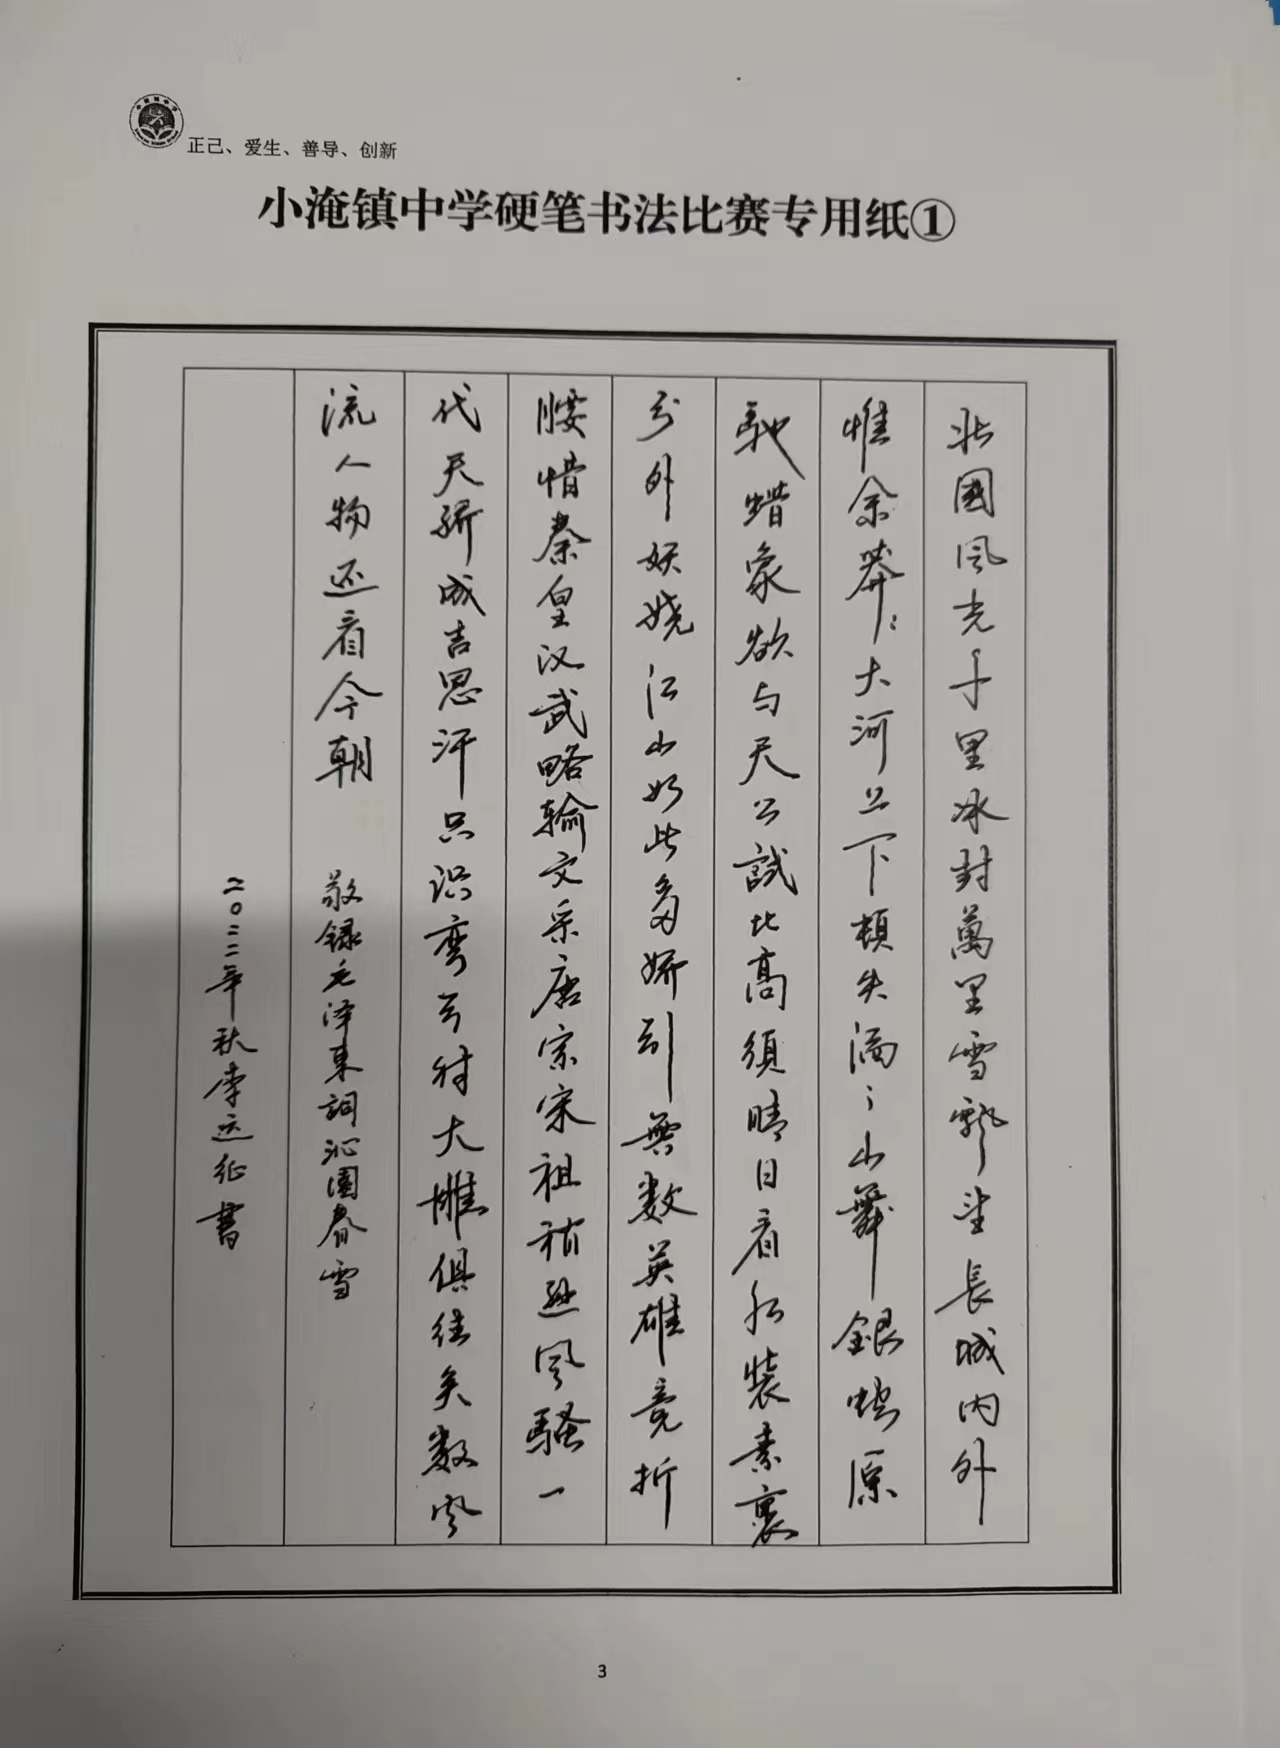 正己、爱生、善导、创新
小淹镇中学硬笔书法比赛专用纸①
北國风光千里冰封萬里雪飘望長城内外
惟余莽〻大河上下顿失滔〻山舞銀蛇原
馳蜡象欲与天公試比高須晴日看红装素裹
分外妖娆江山如此多娇引無数英雄竞折
腰惜秦皇汉武略输文采唐宗宋祖稍逊风骚一
代天骄成吉思汗只识弯弓射大雕俱往矣数风
流人物还看今朝 敬録毛泽東詞沁園春雪
二〇二二年秋李运征書
3